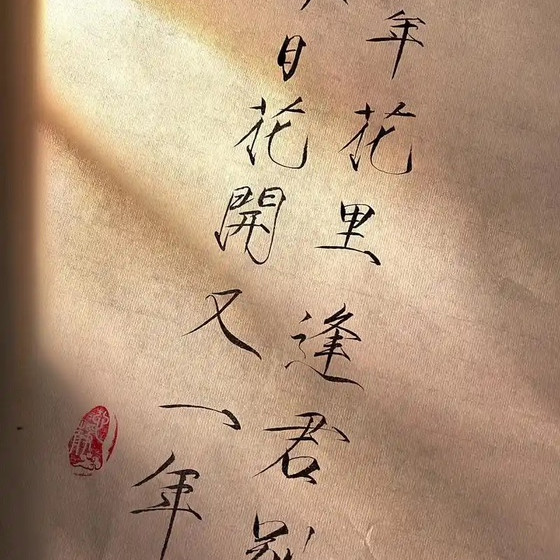 年花里逢君
日花開又一年